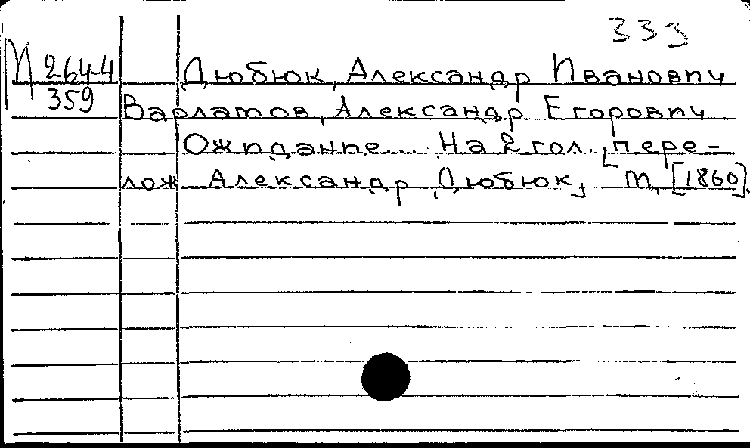 333
М 2644
359
Дюбюк, Александр Иванович
Варламов, Александр Егорович
Ожидание... На 2 гол., [пере-
лож Александр Дюбюк, М, [1860]